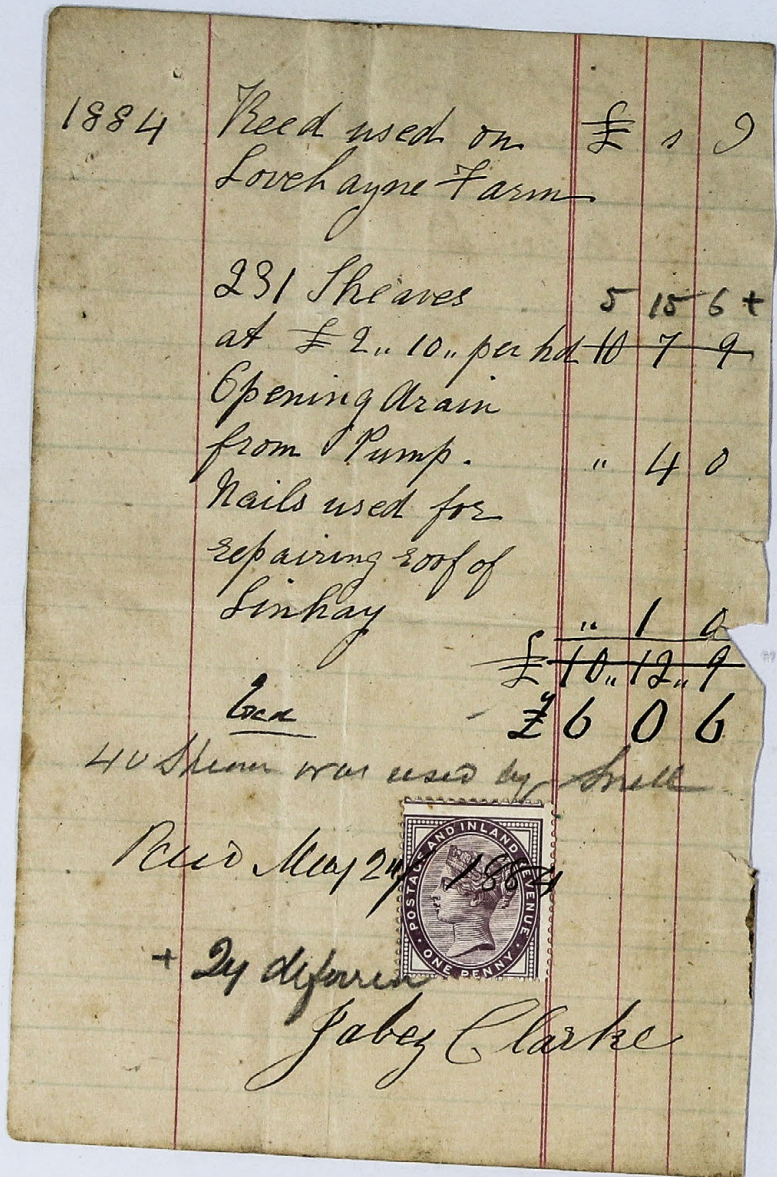 1884 Reed used on £ s d
Lovehayne Farm
231 Sheaves 5 15 6 +
at £ 2 " 10 " per hd 10 7 9
Opening drain
from Pump. " 4 0
Nails used for
repairing roof of
Linhay " 1 0
£ 10 " 12 " 9
£ 6 0 6
40 Sheaves was used by Snell
Paid May 24 1884
POSTAGE AND INLAND REVENUE
ONE PENNY
+ 24
Jabez Clarke